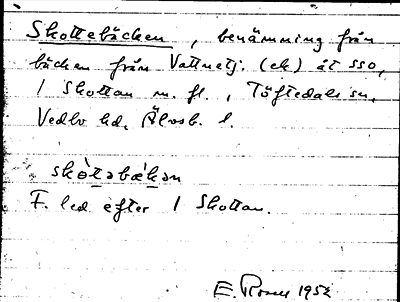 Skottebäcken, benämning från
bäcken från Vattnetj. (ek) åt SSO,
/ Skottan m. fl., Töftedals sn,
Vedbo hd, Älvsb. l.
skòtəbækən
F. led efter / Skottan.
E. 1952